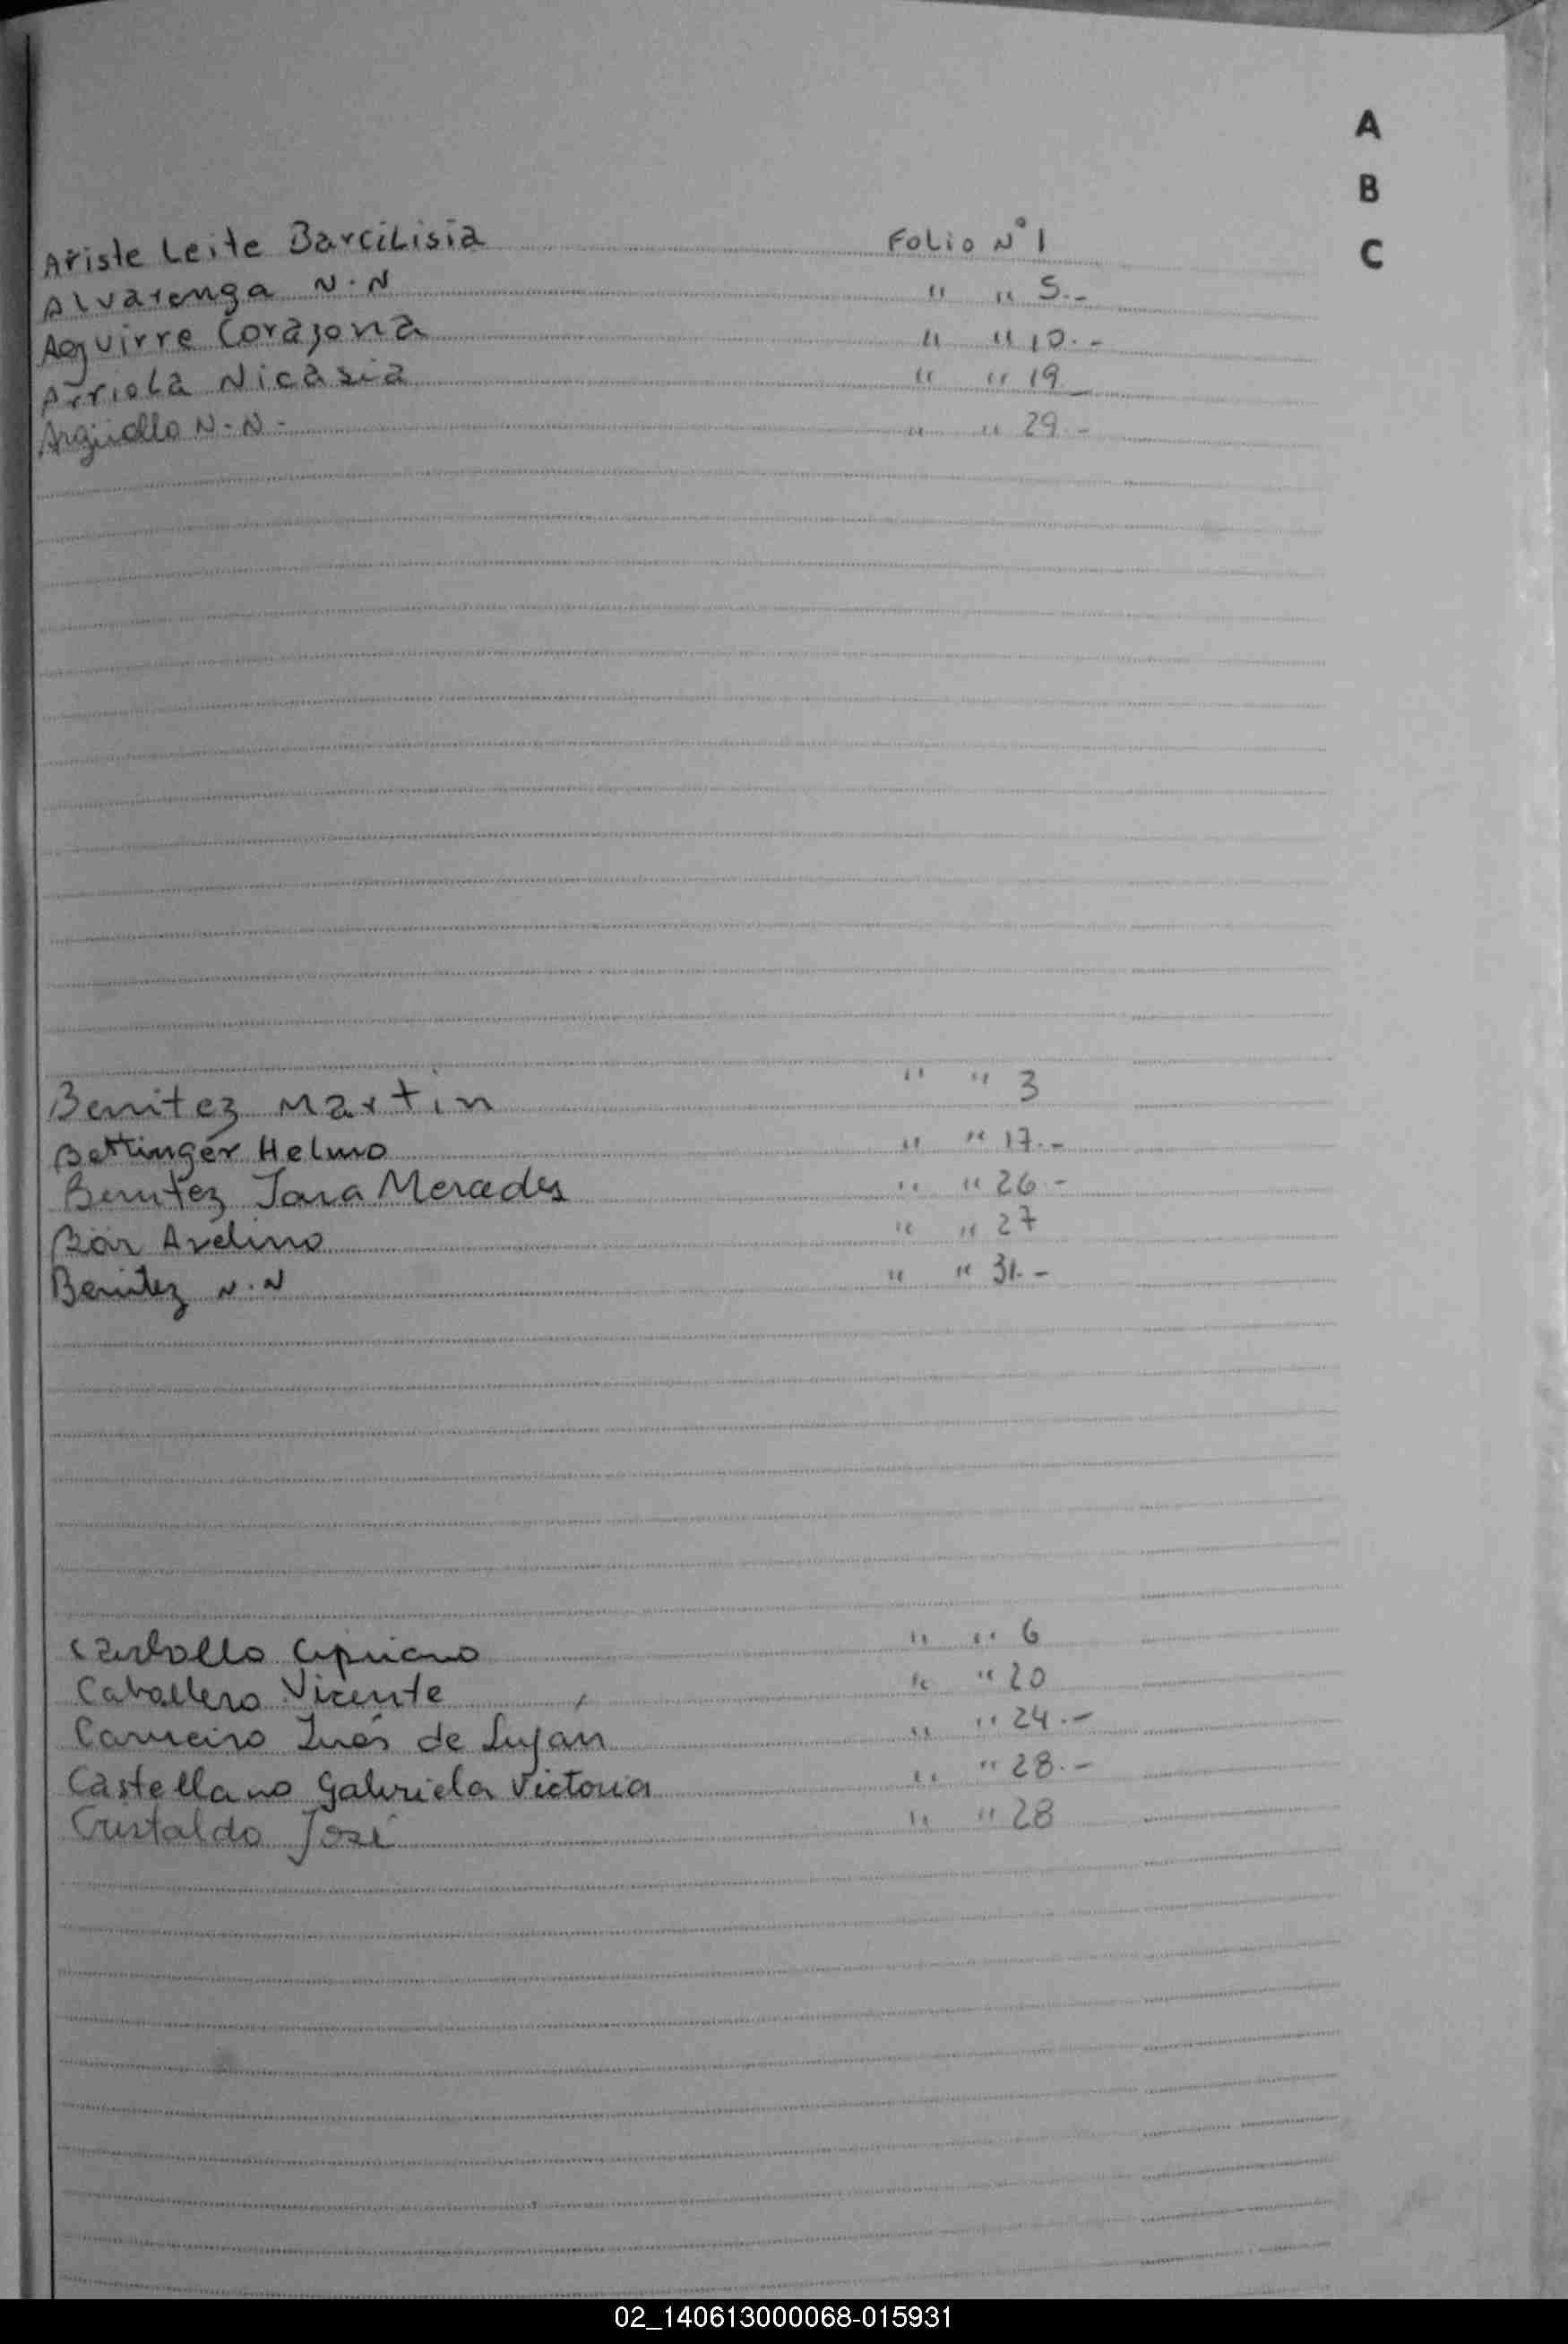 A
B
C
Ariste Leite Barcilisia Folio N° 1
Alvarenga N.N " " 5.-
Aguirre Corazona " " 10.-
Arriola Nicasia " " 19
Argüello N.N.- " " 29.-
Benitez Martin " " 3
Bettinger Helmo " " 17.-
Benitez Jara Mercedes " " 26.-
Bär Avelino " " 27
Benitez N.N " " 31.-
Carballo Cipriano " " 6
Caballero Vicente " " 20
Carneiro Inés de Luján " " 24.-
Castellano Gabriela Victoria " " 28.-
Cristaldo José " " 28
02_140613000068-015931